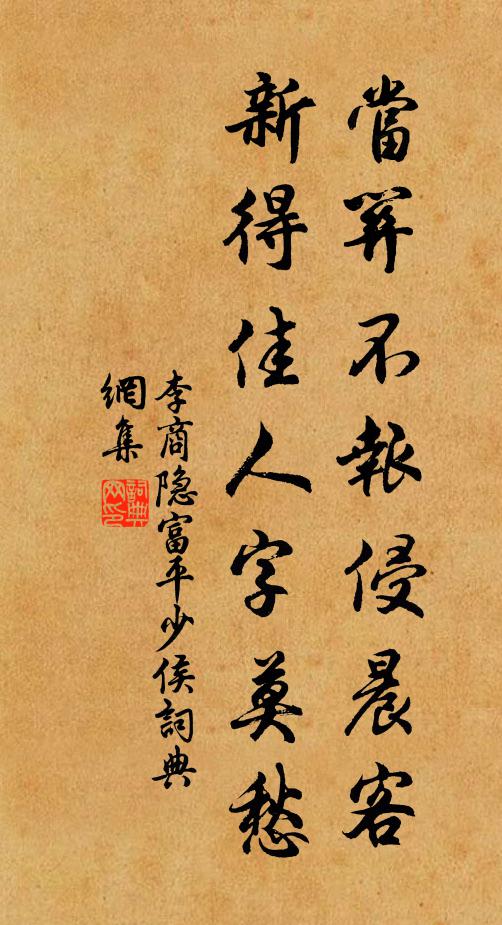 當關不報侵晨客
新得佳人字莫愁
李商隐富平少侯詞典
網集
詞典网印